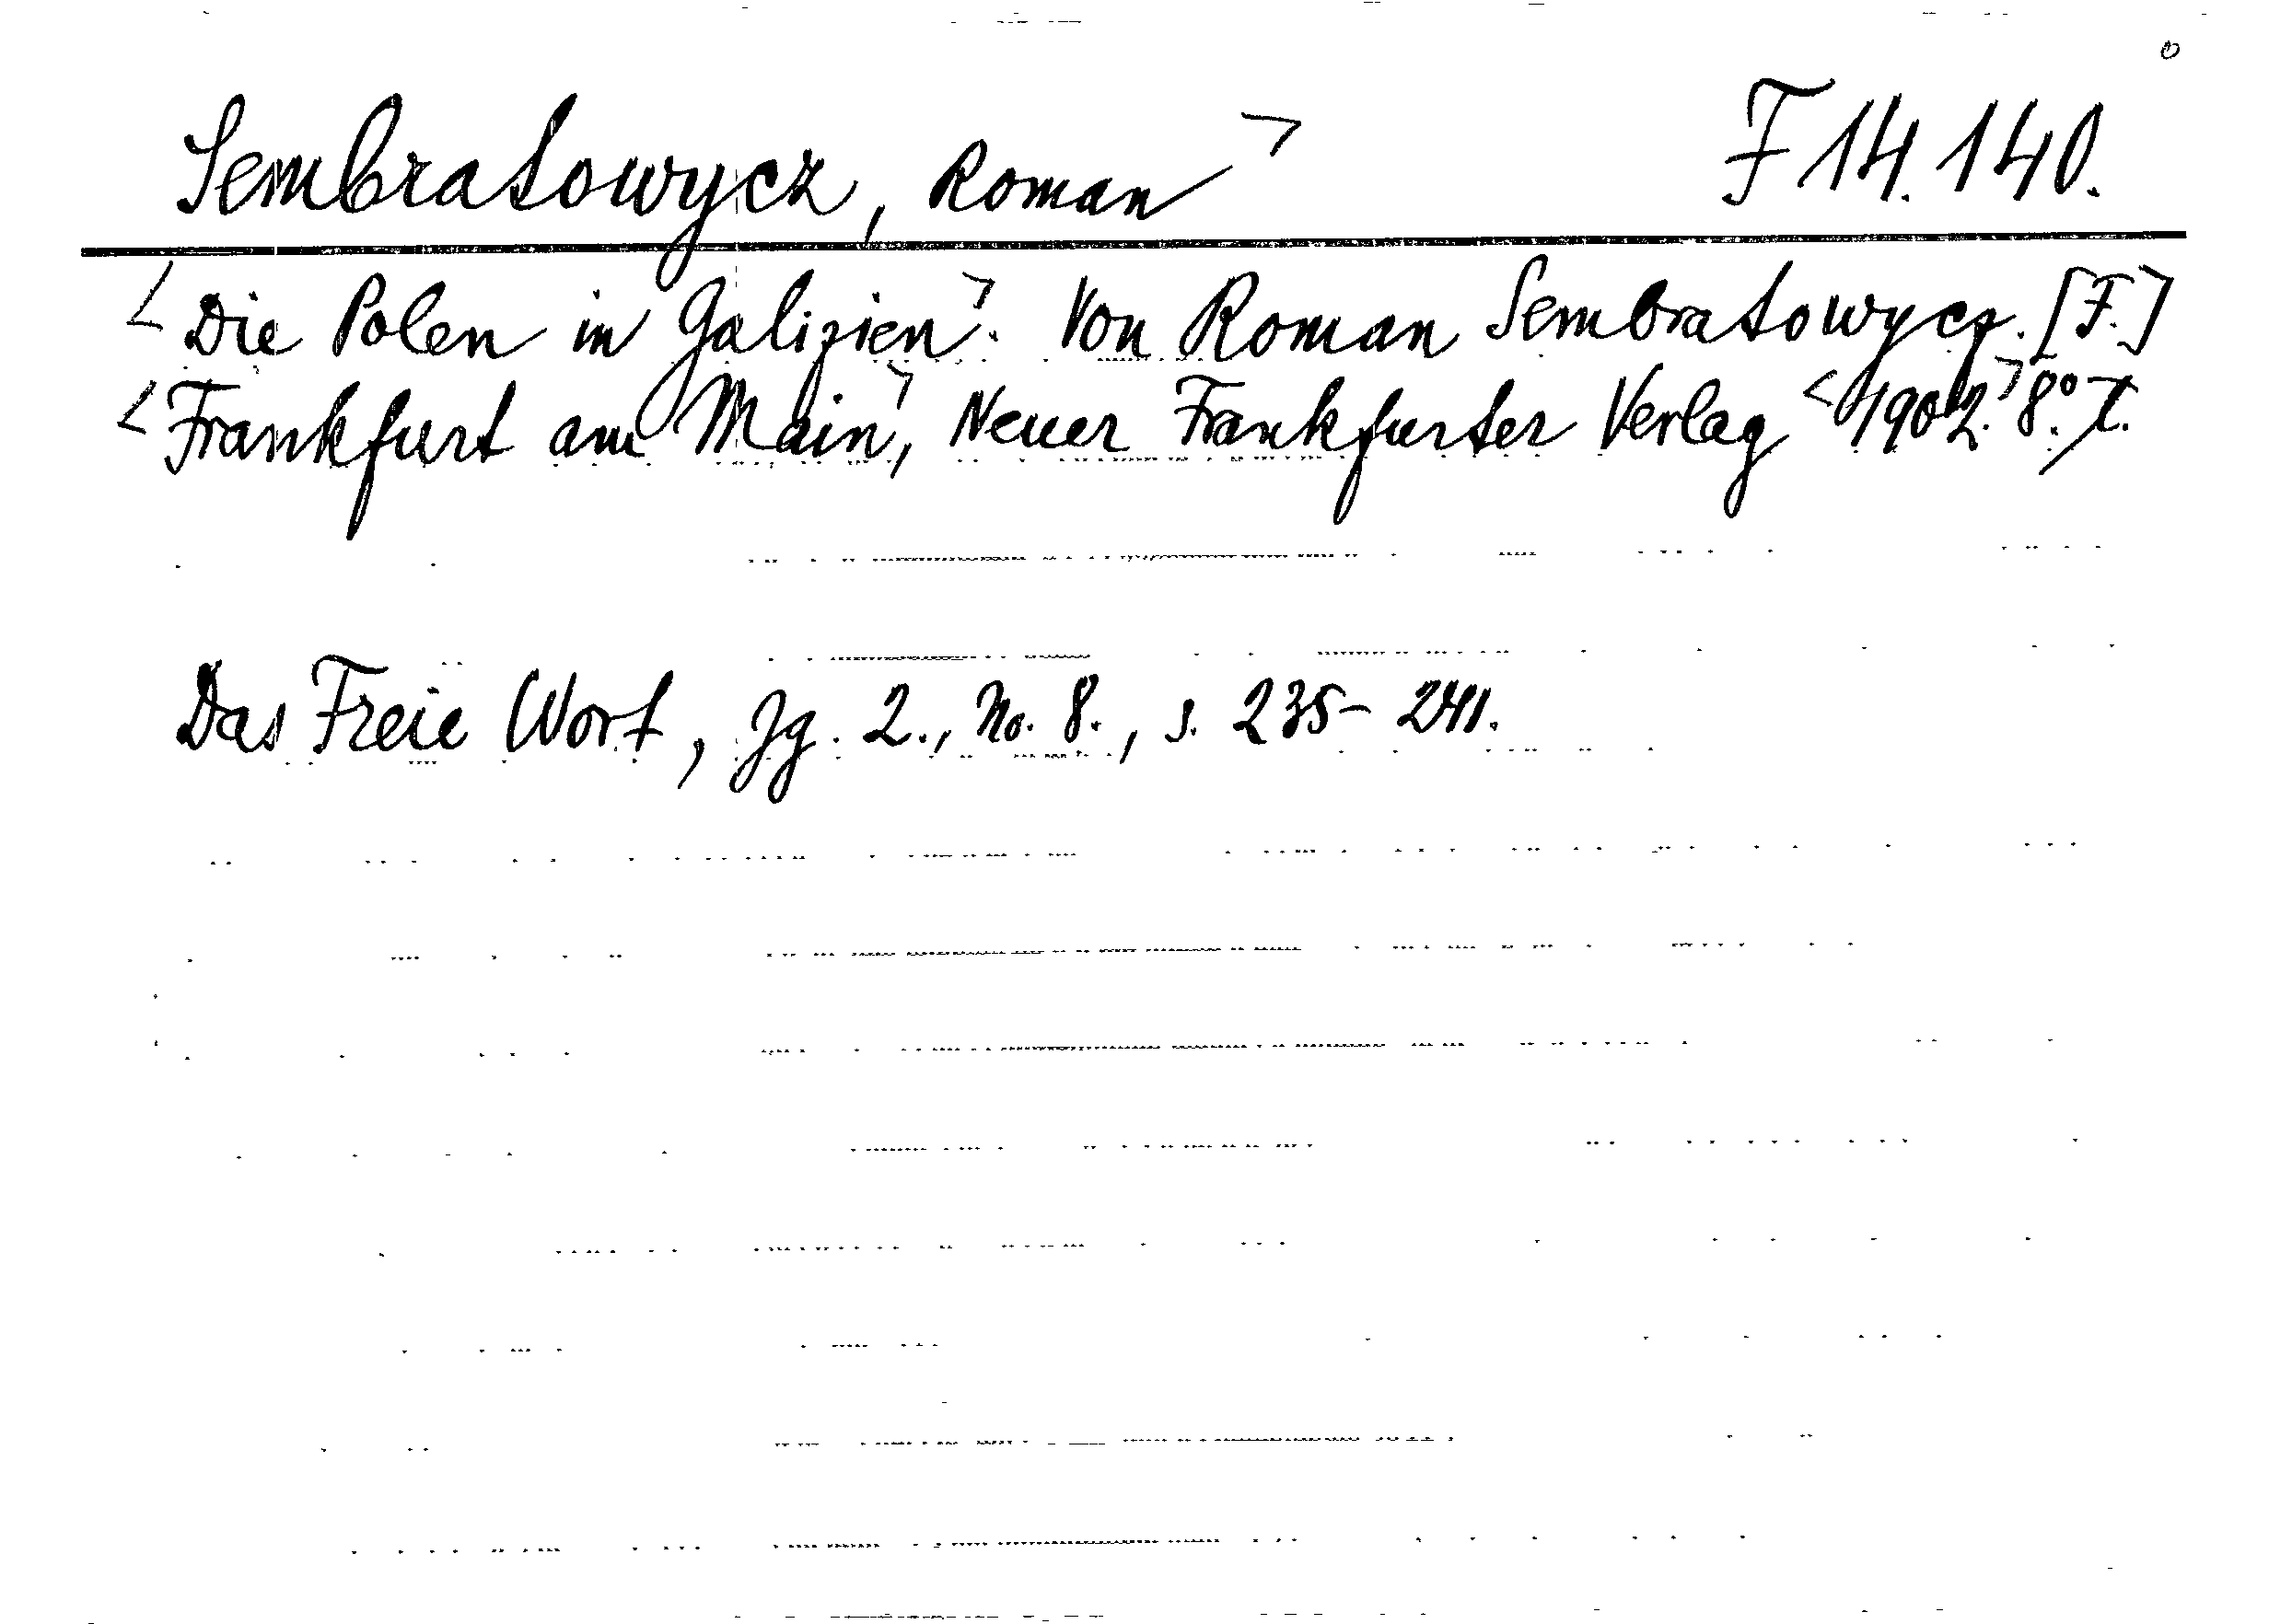 Sembratowycz, Roman> F 14.140.
<Die Polen in Galizien>. Von Roman Sembratowycz. [F.]
<Frankfurt am Main>, Neuer Frankfurter Verlag <1902.> 8°.
Das Freie Wort, Jg. 2., No. 8., s. 235-241.